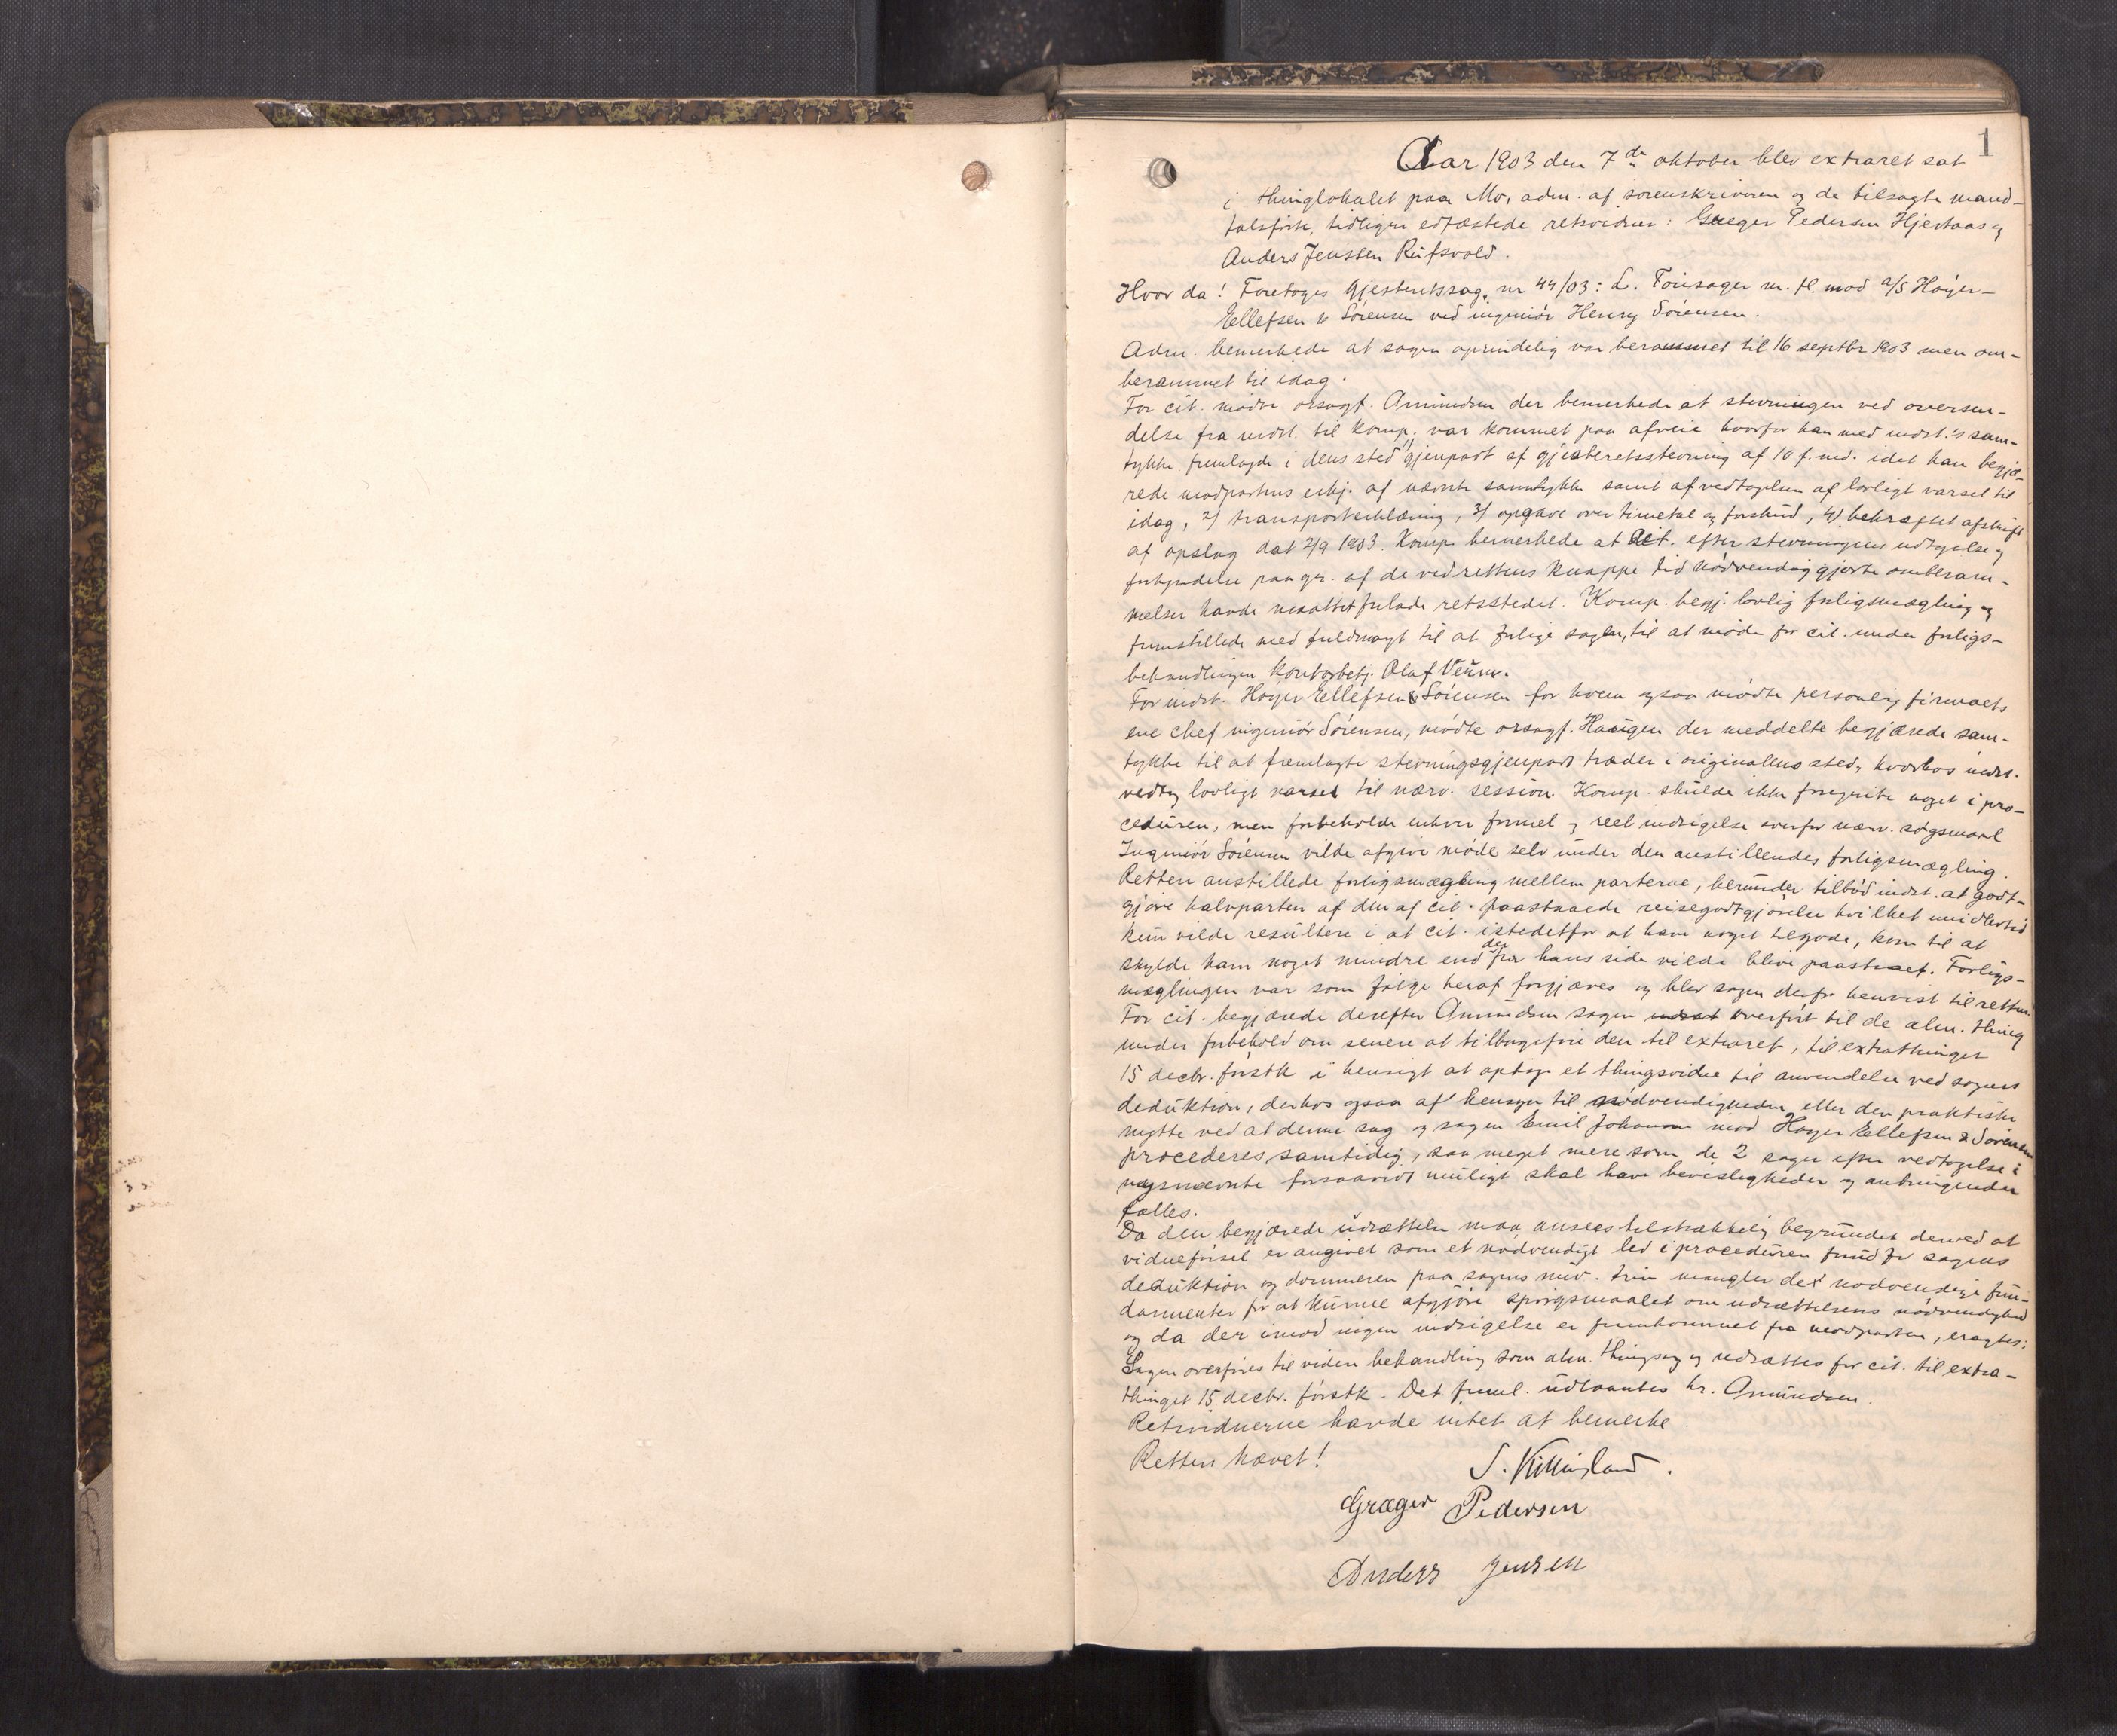 1
Aar 1903 den 7de oktober blev extraret sat
i thinglokalet paa Mo, adm. af sorenskriveren og de tilsagte mand-
talsførte, tidligere edfæstede retsvidner: Græger Pedersen Hjertaas og
Anders Jenssen Rufsvold.
Hvor da! Foretoges Gjesteretssag nr 44/03: L. Torisager m. fl. mod a/S Høyer-
Ellefsen & Sørensen ved ingeniør Henry Sørensen.
Adm. bemerkede at sagen oprindelig var berammet til 16 septbr 1903 men om-
berammet til idag.
For cit. mødte orsagf. Amundsen der bemerkede at stevningen ved oversen-
delse fra indst. til komp. var kommet paa afveie hvorfor han med indst.'s sam-
tykke fremlagde i dens sted gjenpart af gjesteretsstevning af 10 f. md. idet han begjæ-
rede modpartens erkj. af nævnte samtykke samt af vedtagelsen af lovligt varsel til
idag, 2) transporterklæring, 3) opgave over timetal og forskud, 4) bekræftet afskrift
af opslag dat 2/9 1903. Komp. bemerkede at Cit. efter stevningens udtagelse og
forkyndelse paa gr. af de ved rettens knappe tid nødvendiggjorte omberam-
melser havde maattet forlade retsstedet. Komp. begj. lovlig forligsmægling og
fremstillede med fuldmagt til at forlige sagen, til at møde for cit. under forligs-
behandlingen kontorbetj. Olaf
For indst. Høyer Ellefsen & Sørensen for hvem ogsaa mødte personlig firmaets
ene chef ingeniør Sørensen, mødte orsagf. Haugen der meddelte begjærede sam-
tykke til at fremlagte stevningsgjenpart træder i originalens sted, hvorhos indst.
vedtog lovligt varsel til nærv. session. Komp. skulde ikke foregribe noget i pro-
ceduren, men forbeholde enhver formel og reel indsigelse overfor nærv. søgsmaal
Ingeniør Sørensen vilde afgive møde selv under den anstillendes forligsmægling.
Retten anstillede forligsmægling mellem parterne, herunder tilbød indst. at godt-
gjøre halvparten af den af cit. paastaaede reisegodtgjørelse hvilket imidlertid
kun vilde resultere i at cit. istedetfor at have noget tilgode, kom til at
skylde ham noget mindre end der fra hans side vilde blive paastaaet. Forligs-
mæglingen var som følge heraf forgjæves og blev sagen derfor henvist til retten.
For cit. begjærede derefter Amundsen sagen udsat overført til de alm. thing
under forbehold om senere at tilbageføre den til extraret, til extrathinget
15 decbr. førstk i hensigt at optage et thingsvidne til anvendelse ved sagens
deduktion, derhos ogsaa af hensyn til nødvendigheden eller den praktiske
nytte ved at denne sag og sagen Emil Johansen mod Høyer Ellefsen & Sørensen
procederes samtidig, saa meget mere som de 2 sager efter vedtagelse i
nysnævnte forsaavidt muligt skal have bevisligheder og anbringender
fælles.
Da den begjærede udsættelse maa ansees tilstrækkelig begrundet derved at
vidneførsel er angivet som et nødvendigt led i proceduren forud for sagens
deduktion og dommeren paa sagens nuv. trin mangler det nødvendige fun-
damenter for at kunne afgjøre spørgsmaalet om udsættelsens nødvendighed
og da der imod ingen indsigelse er fremkommet fra modparten, eragtes:
Sagen overføres til viden behandling som alm. thingsag og udsættes for cit. til extra-
thinget 15 decbr. førstk. Det freml. udlaantes hr. Amundsen.
Retsvidnerne havde intet at bemerke
Retten hævet!
S. Killingland.
Græger Pedersen
Anders Jensen